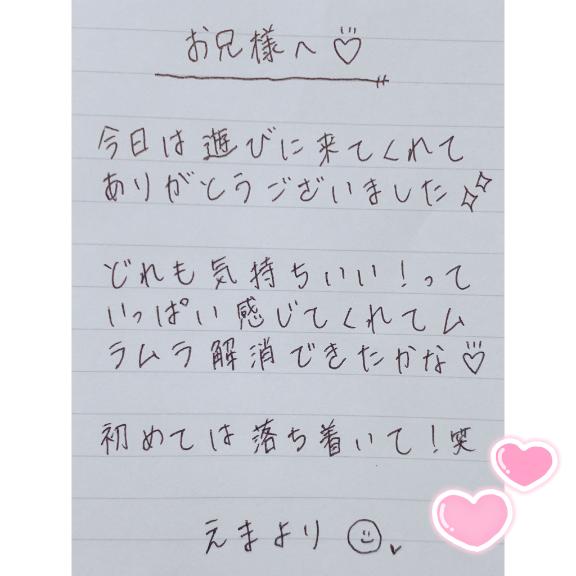 お兄様へ♡
今日は遊びに来てくれて
ありがとうございました✨
どれも気持ちいい！って
いっぱい感じてくれてム
ラムラ解消できたかな♡
初めては落ち着いて！笑
えまより